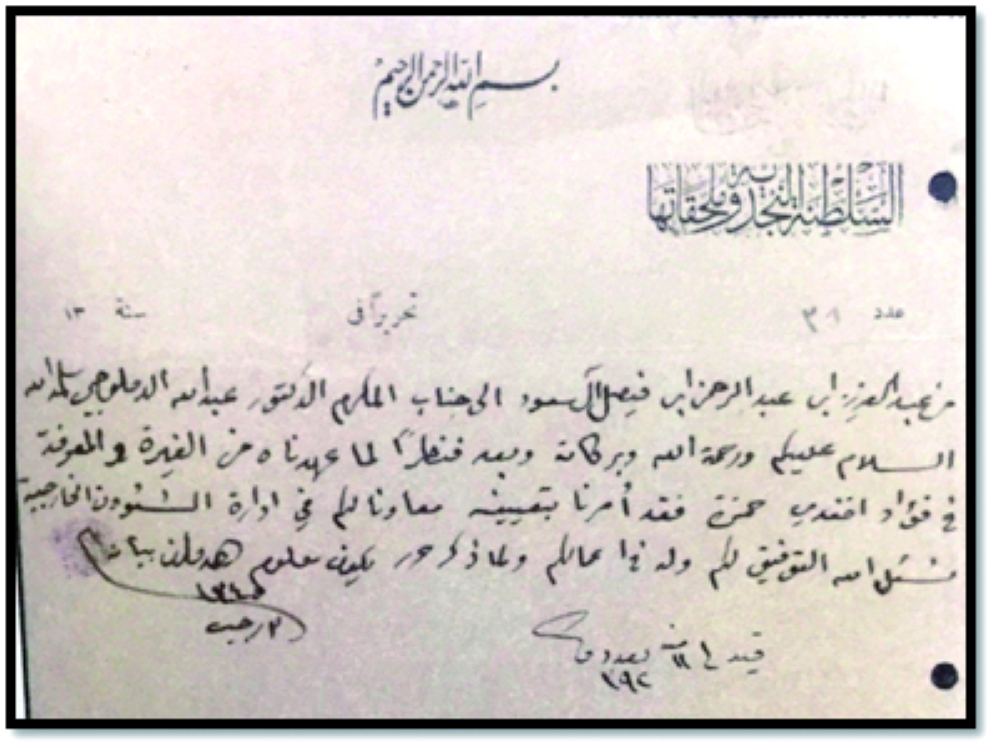 بسم الله الرحمن الرحيم
السلطنة النجدية وملحقاتها
عدد ٣١ تحريراً في سنة ١٣
من عبد العزيز ابن عبد الرحمن ابن فيصل آل سعود الى جناب المكرم الدكتور عبدالله الدملوجي سلمه الله
السلام عليكم ورحمة الله وبركاته وبعد فنظراً لما عهدناه من الغيرة والمعرفة
في فؤاد افندي حمزة فقد أمرنا بتعيينه معاونا لكم في ادارة الشؤون الخارجية
نسئل الله التوفيق لكم وله في اعمالكم ولما ذكر حرر يكون معلوم
١٣٤٥
رجب
قيد في ١١ منه بعدد
٢٩٢